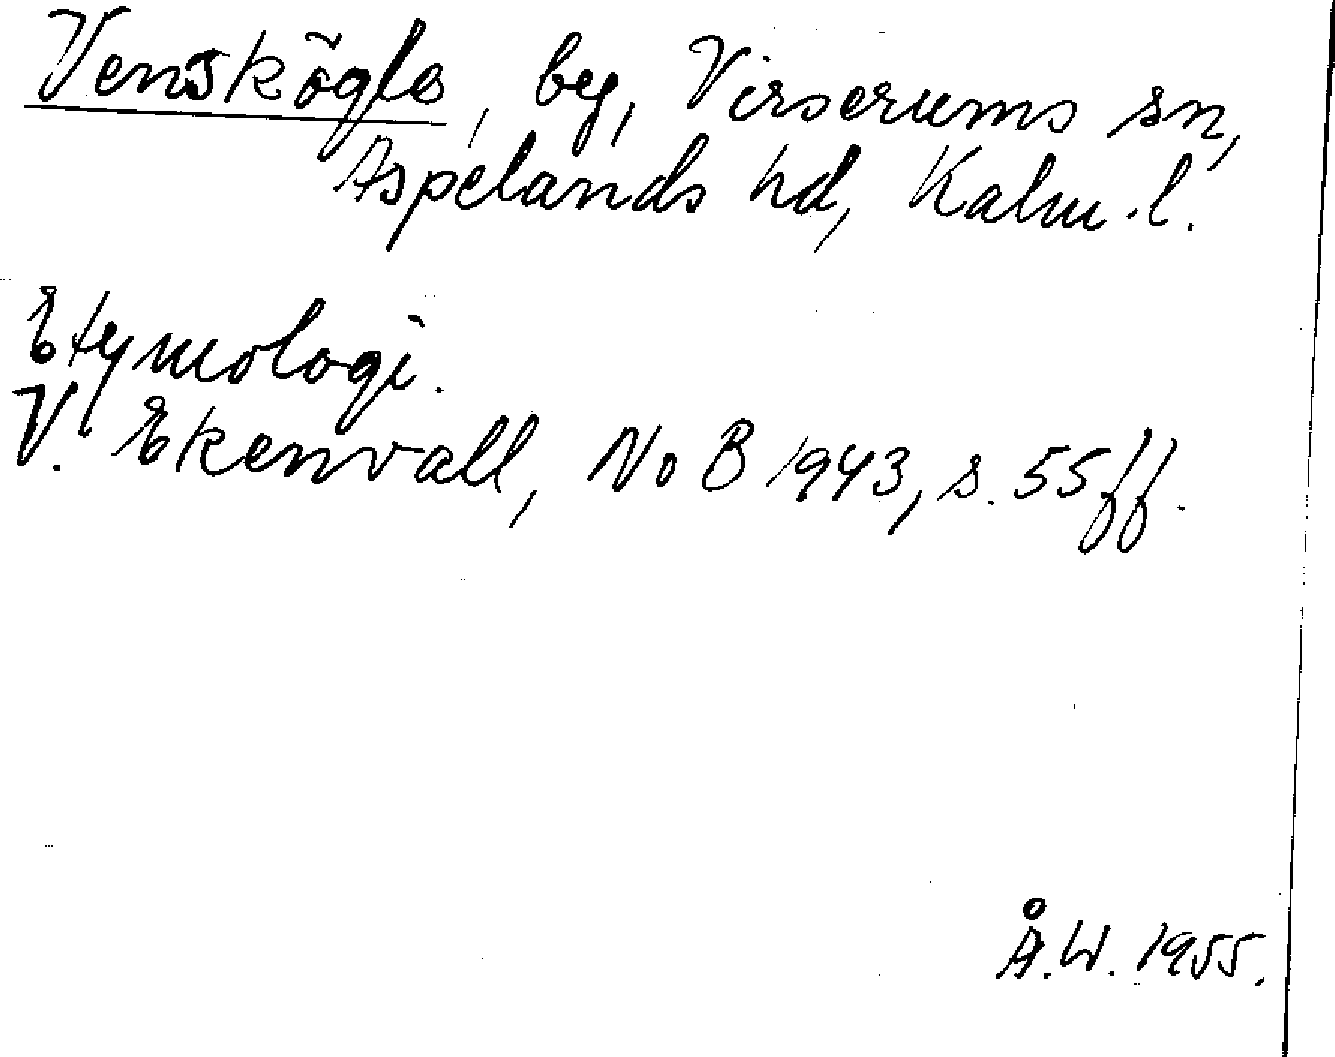 Venskögle, by, Virserums sn,
Aspelands hd, Kalm. l.
Etymologi.
V. Ekenvall, NoB 1943, s. 55 ff.
Å.W. 1955.